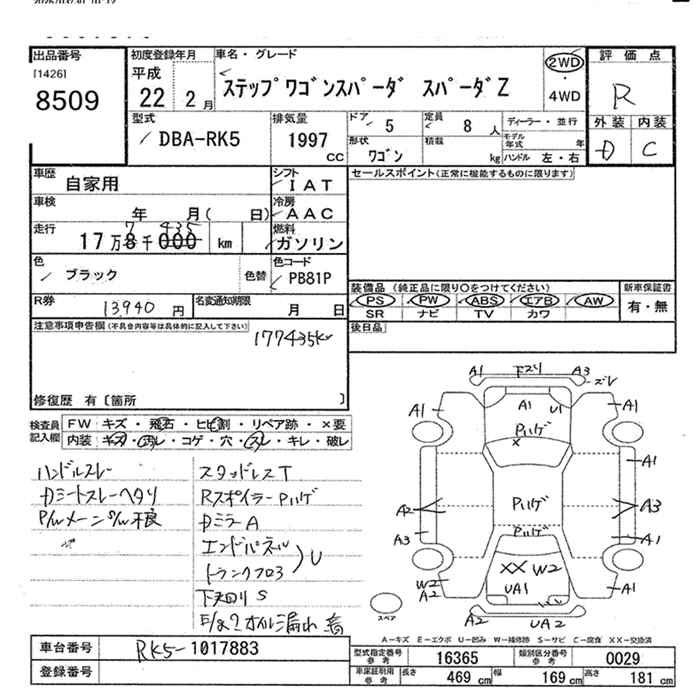 出品番号
[1426]
8509
初度登録年月
平成
22 2月
車名・グレード
ステップワゴンスパーダ スパーダZ
2WD
・
4WD
評価点
R
外装 内装
D C
型式
DBA-RK5
排気量
1997
CC
ドア
5
定員
8 人
形状
ワゴン
積載
kg
ディーラー・並行
モデル年式 年
ハンドル 左・右
車歴
自家用
シフト
IAT
車検
年 月( 日)
冷房
AAC
走行
17万8千000 km
7 435
燃料
ガソリン
色
ブラック
色替
色コード
PB81P
R券
13,940 円
名変通知期限
月 日
セールスポイント(正常に機能するものに限ります)
装備品 (純正品に限り○をつけてください)
PS PW ABS エアB AW
SR ナビ TV カワ
新車保証書
有・無
後日品
注意事項申告欄(不具合内容等は具体的に記入して下さい)
177435km
修復歴 有〔箇所 〕
検査員記入欄
FW キズ・飛石・ヒビ割・リペア跡・×要
内装 キズ・汚レ・コゲ・穴・スレ・キレ・破レ
ハンドルスレ
Dシートスレヘタリ
P/wメーンS/w不良
スタッドレスT
RスポイラーPハゲ
DミラーA
エンドパネル
トランクフロア
U
下廻りS
オイル漏れ
A1 下スリ A3
ズレ
A1 A1 U1 A1
Pハゲ
×
A1
A2 Pハゲ A3
A3 Pハゲ A1
W2 ××W2
A2 UA1 A1
A2 UA2
スペア
A-キズ E-エクボ U-凹み W-補修跡 S-サビ C-腐食 XX-交換済
車台番号
RK5-1017883
登録番号
型式指定番号
参考
16365
類別区分番号
参考
0029
車庫証明用
参考
長さ
469 cm
幅
169 cm
高さ
181 cm